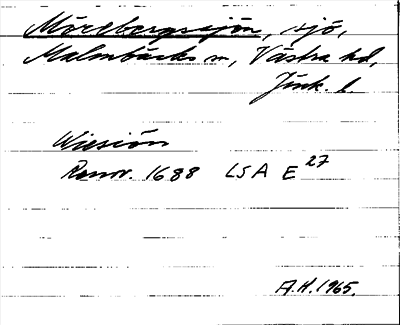 Mörebergssjön, sjö,
Malmbäcks sn, Västra hd,
Jönk. l.
Wiesiön
Renov. 1688 LSA E 27
A.H. 1965.